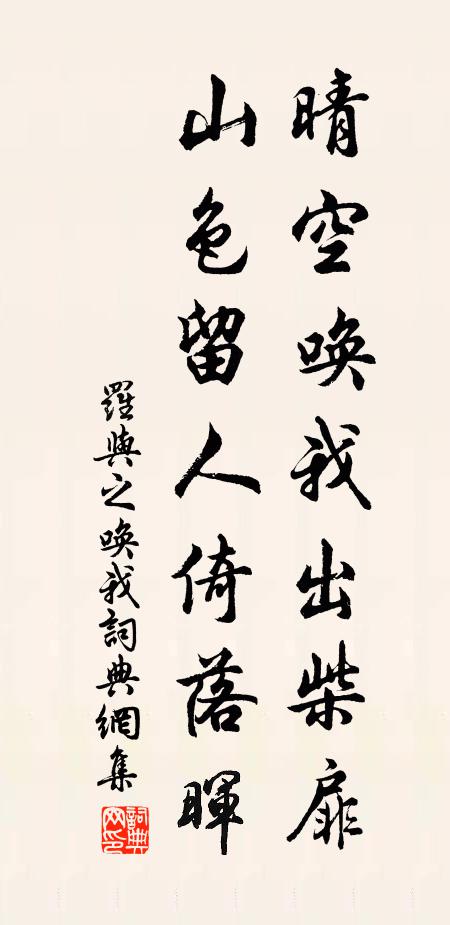 晴空唤我出柴扉
山色留人倚落暉
羅與之唤我詞典網集
詞典网印